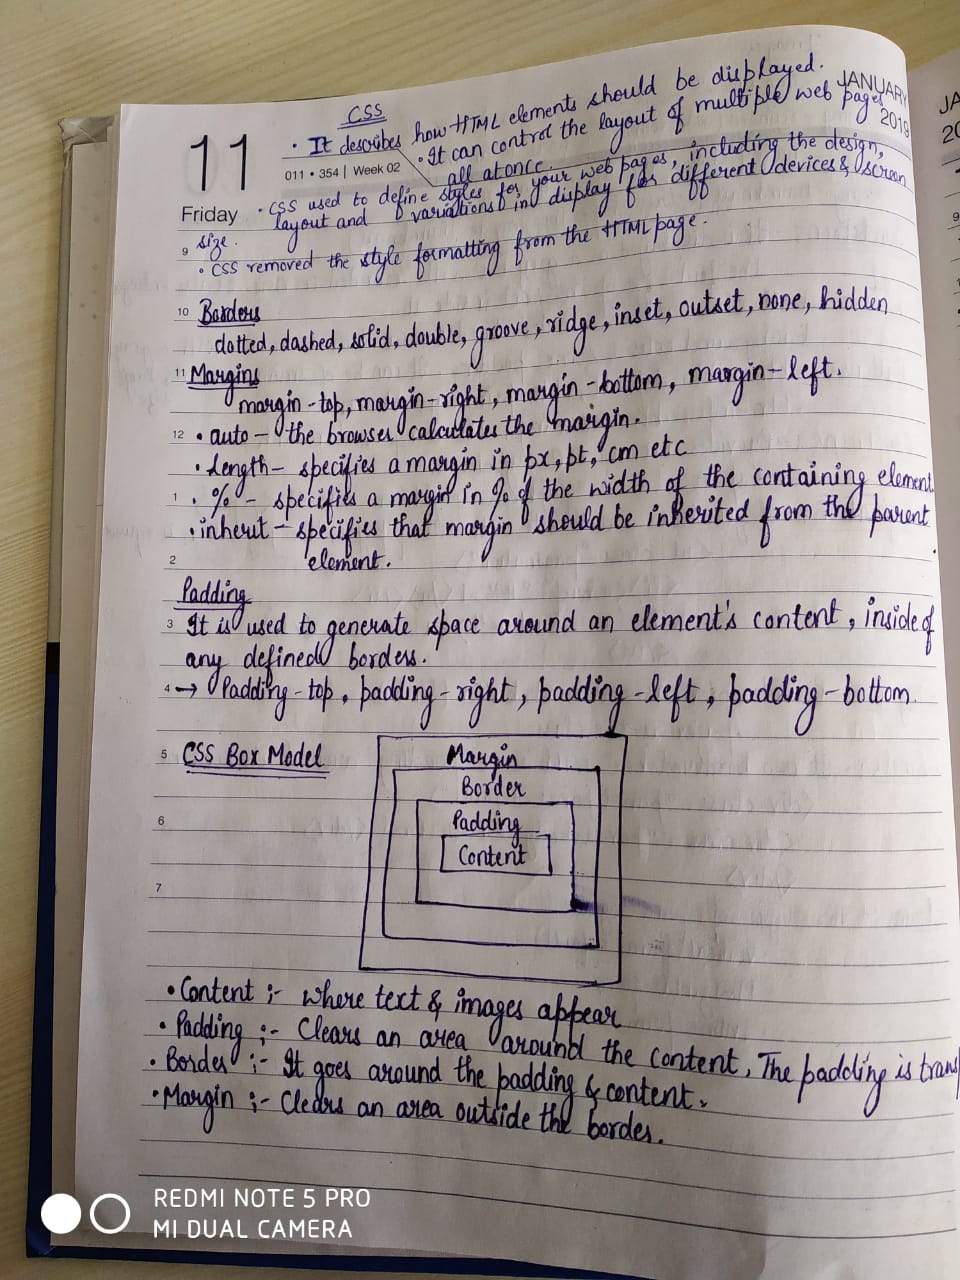 CSS
JANUARY
2019
11
011 • 354 | Week 02
Friday
• It describes how HTML elements should be displayed.
• It can control the layout of multiple web pages
all at once.
• CSS used to define styles for your web pages, including the design,
layout and variations in display for different devices & screen
size.
• CSS removed the style formatting from the HTML page.
Borders
dotted, dashed, solid, double, groove, ridge, inset, outset, none, hidden
Margins
margin-top, margin-right, margin-bottom, margin-left.
• auto - the browser calculates the margin.
• Length - specifies a margin in px, pt, cm etc
• % - specifies a margin in % of the width of the containing element
• inherit - specifies that margin should be inherited from the parent
element.
Padding
It is used to generate space around an element's content, inside of
any defined borders.
→ Padding-top, padding-right, padding-left, padding-bottom.
CSS Box Model
Margin
Border
Padding
Content
• Content :- where text & images appear
• Padding :- Clears an area around the content, The padding is trans
• Border :- It goes around the padding & content.
• Margin :- Clears an area outside the border.
9
10
11
12
1
2
3
4
5
6
7
JA
20
9
REDMI NOTE 5 PRO
MI DUAL CAMERA